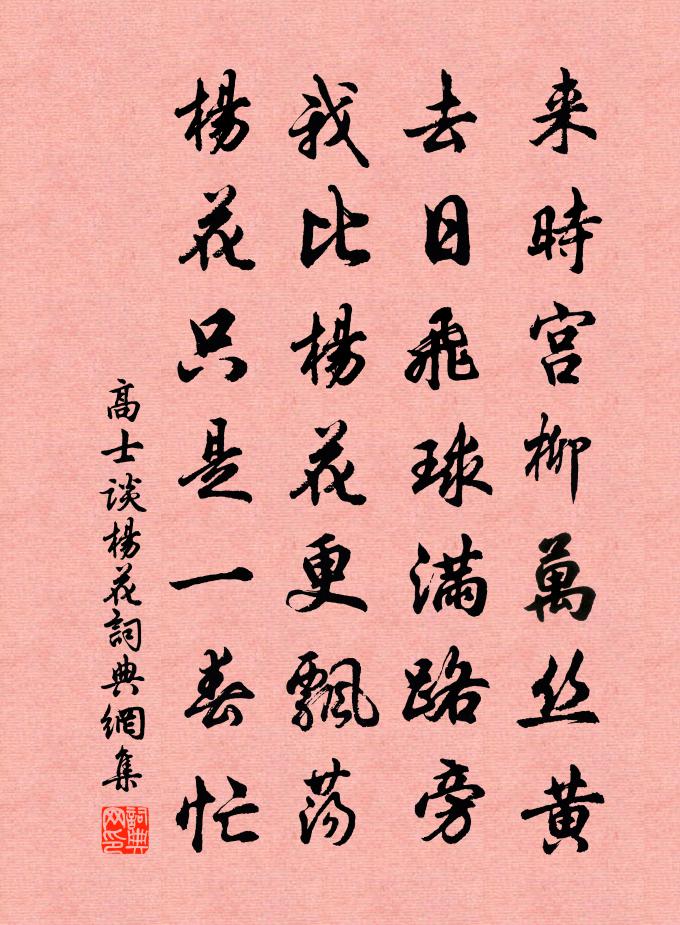 来時宫柳萬丝黄
去日飛球满路旁
我比楊花更飄荡
楊花只是一春忙
高士谈楊花詞典網集
詞典网印